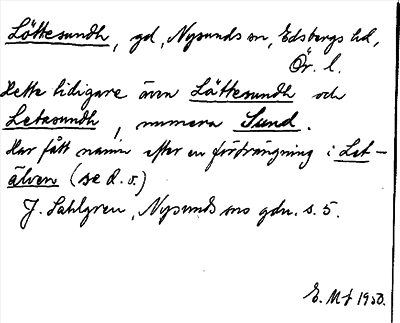 Löttesundh, gd, Nysunds sn, Edsbergs hd,
Ör. l.
Hette tidigare även Lättesundh och
Letasundh, numera Sund.
Har fått namn efter en förträngning i Let-
älven (se d. o.)
J. Sahlgren, Nysunds sns gdn. s. 5.
E. Mt 1950.